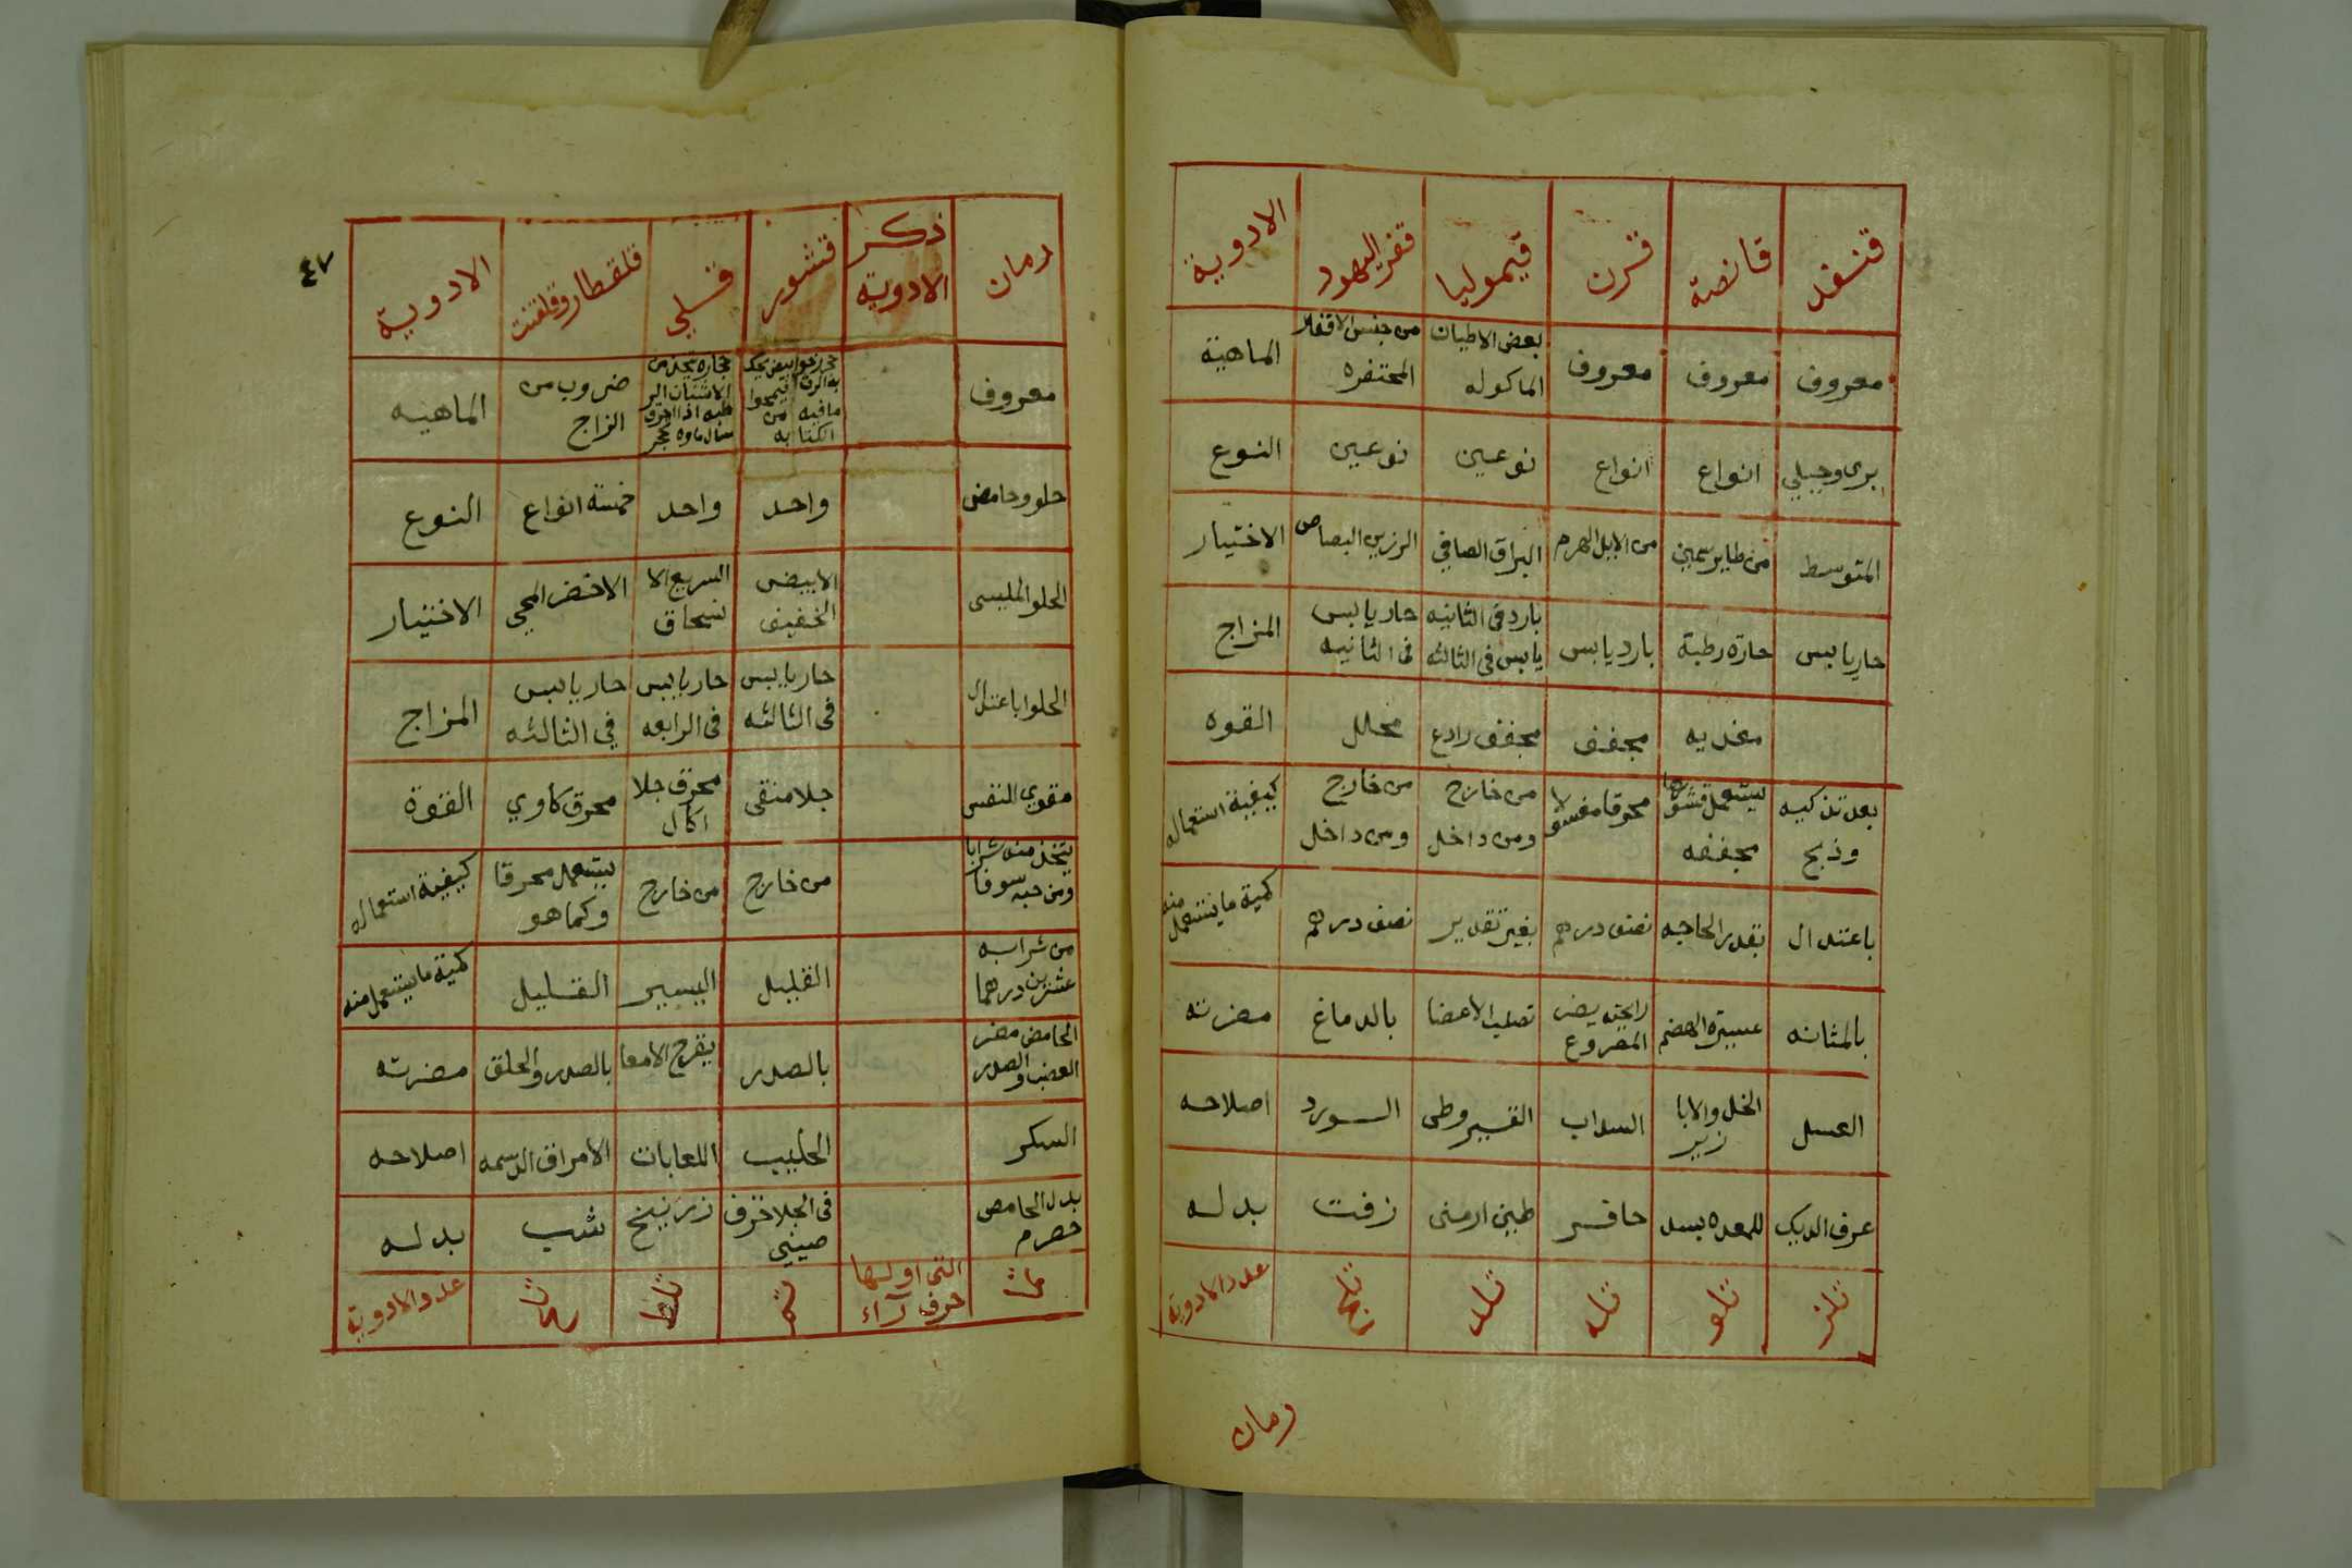 قنفد قانصة قرن قيموليا قفر اليهود الادوية
معروف معروف معروف بعض الاطيان الماكوله من جنس الاقفار المحتفره الماهية
برى وجبلي انواع انواع نوعين نوعين النوع
المتوسط من طاير سمين من الابل الهرم البراق الصافي الرزين البصاص الاختيار
حار يابس حارة رطبة بارد يابس بارد فى الثانيه يابس فى الثالثه حار يابس فى الثانيه المزاج
مغذيه مجفف مجفف رادع محلل القوه
بعد تذكيه وذبح يستعمل قشورها مجففه محرقا مغسولا من خارج ومن داخل من خارج ومن داخل كيفية استعماله
باعتدال بقدر الحاجه نصف درهم بغير تقدير نصف درهم كمية ما يستعمل منه
بالمثانه عسيرة الهضم رايحته يضر المصروع تصلب الاعضا بالدماغ مضرته
العسل الخل والابازير السداب القيروطى الورد اصلاحه
عرف الديك للمعده بسد حافر طين ارمنى زفت بدله
تلز تلو تله تلد تلج عدد الادوية
رمان
٤٧
رمان ذكر الادوية قشور قلي قلقطار وقلقنت الادوية
معروف حجر رخو ابيض يحك به الرق فيمحوا ما فيه من الكتابه حجاره تتخذ من الاشنان الرطبه اذا احرق سال ماوه تحجر ضروب من الزاج الماهيه
حلو وحامض واحد واحد خمسة انواع النوع
الحلو المليسى الابيض الخفيف السريع الانسحاق الاخضر المحي الاختيار
الحلوا باعتدال حار يابس فى الثالثه حار يابس فى الرابعه حار يابس في الثالثه المزاج
مقوى النفس جلا منقى محرق جلا اكال محرق كاوي القوة
يتخذ منه شرابا ومن حبه سوفا من خارج من خارج يستعمل محرقا وكما هو كيفية استعماله
من شرابه عشرين درهما القليل اليسير القليل كمية ما يستعمل منه
الحامض مضر العصب والصدر بالصدر يقرح الامعا بالصدر والحلق مضرته
السكر الحليب اللعابات الامراق الدسمه اصلاحه
بدل الحامض حصرم فى الجلا خزف صيني زرنيخ شب بدله
التى اولها حرف آراء تلط عدد الادوية